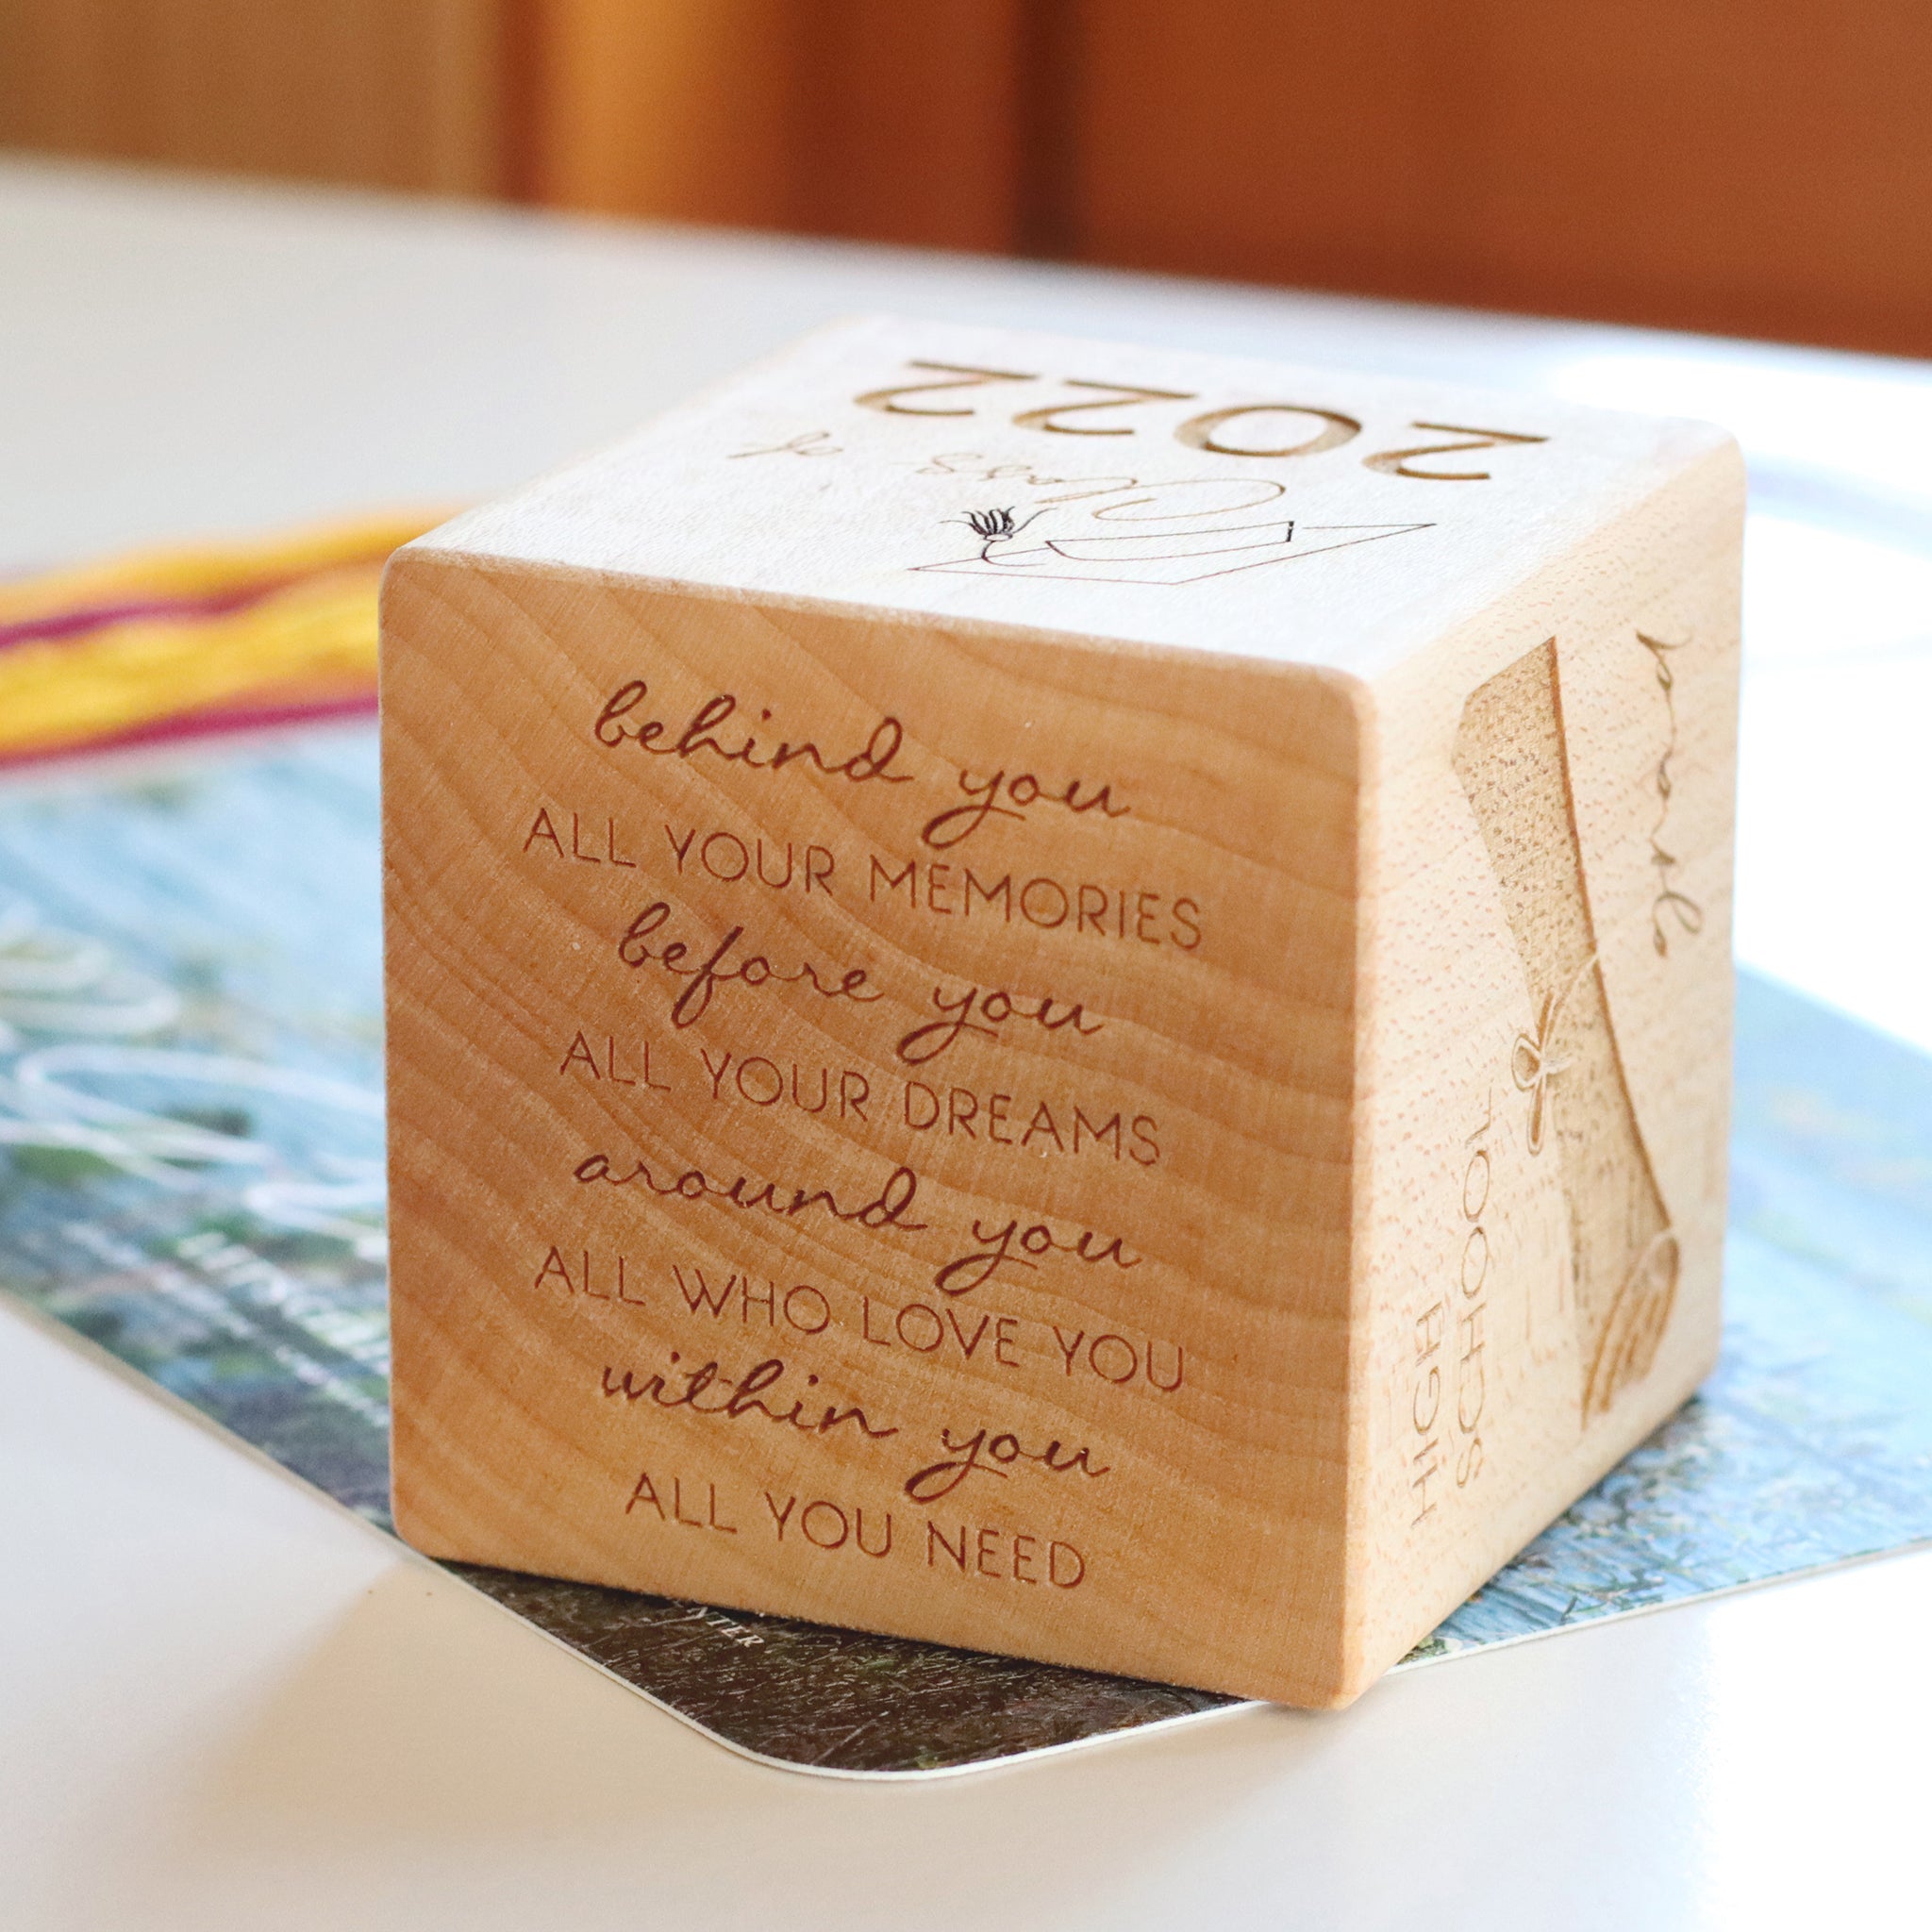 behind you
ALL YOUR MEMORIES
before you
ALL YOUR DREAMS
around you
ALL WHO LOVE YOU
within you
ALL YOU NEED
Class of
2022
HIGH
SCHOOL